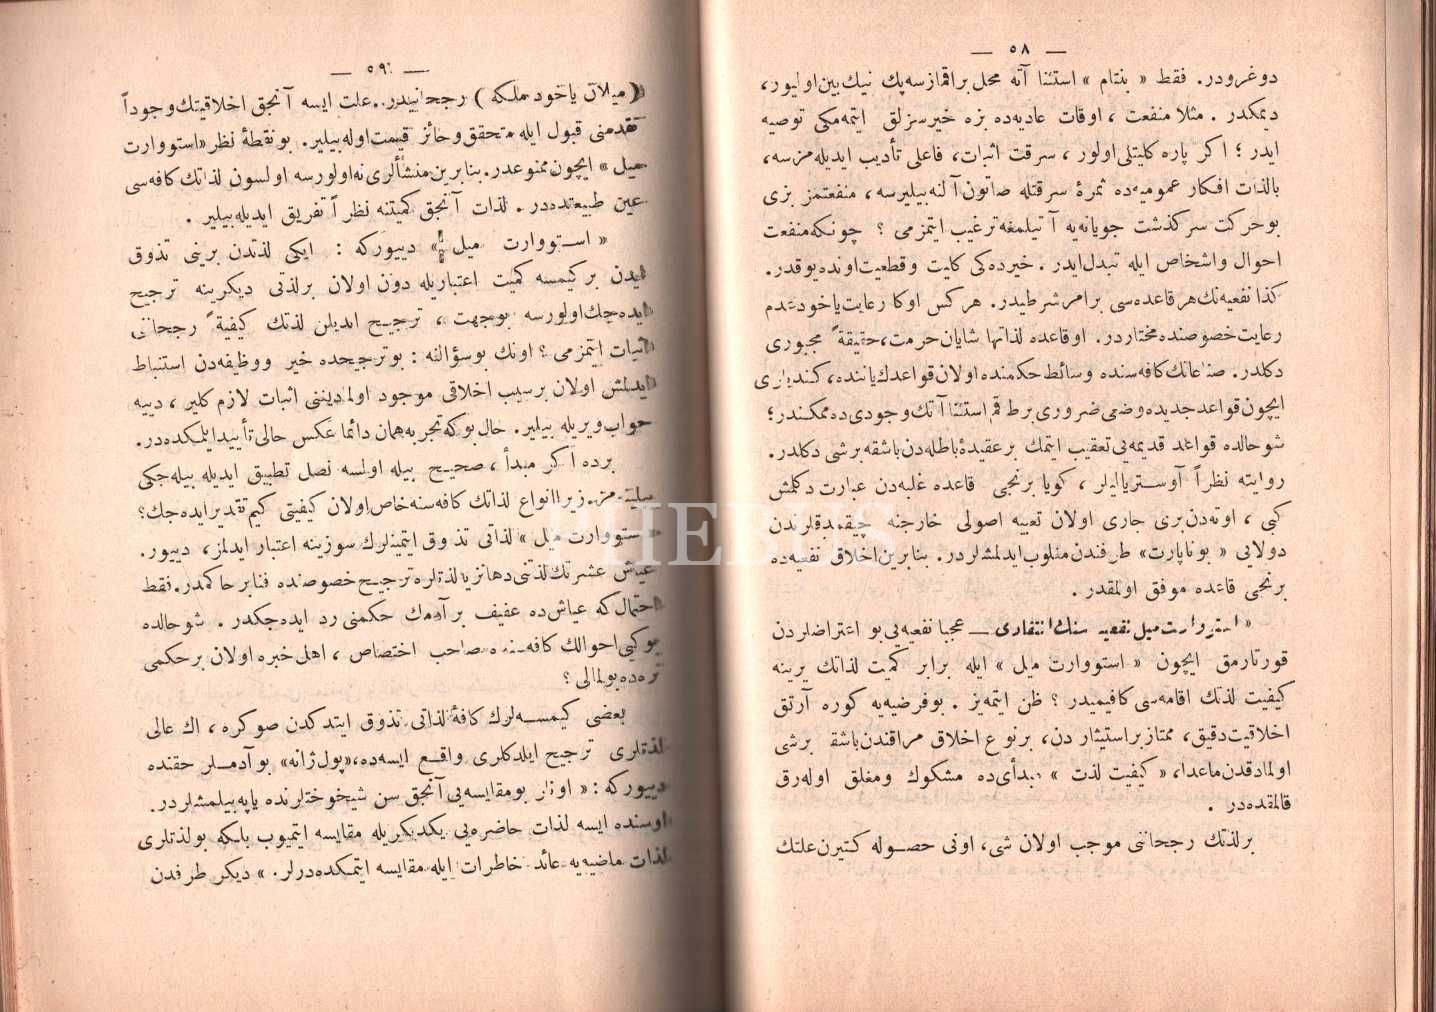 — ٥٨ —
دوغرودر. فقط « بنتام » استثنا آته محل براقمازسه پك نيك بين اوليور،
ديمكدر . مثلا منفعت ، اوقات عاديه‌ده بزه خيرسزلق ايتمه‌مكی توصيه
ايدر ؛ اكر پاره كليتلی اولور ، سرقت اثبات، فاعلی تأديب ايديله‌مزسه،
بالذات افكار عموميه‌ده ثمرهٔ سرقتله صاتون آلنه‌بيليرسه ، منفعتمز بزی
بوحركت سركذشت جويانه‌يه آتيلمغه ترغيب ايتمزمی ؟ چونكه منفعت
احوال واشخاص ايله تبدل ايدر . خيرده‌كی كليت وقطعيت اونده يوقدر.
كذا نفعيه‌نك هر قاعده‌سی برامر شرطيدر. هركس اوكا رعايت ياخود عدم
رعايت خصوصنده مختاردر. اوقاعده لذاتها شايان حرمت، حقيقةً مجبوری
دكلدر. صناعاتك كافه‌سنده وسائط حكمنده اولان قواعدك ياننده ، كنديلری
ايچون قواعد جديده وضعی ضروری برطاقم استثنا آتك وجودی ده ممكندر؛
شو حالده قواعد قديمه‌يی تعقيب ايتمك بر عقيدهٔ باطله‌دن باشقه برشی دكلدر.
روايته نظراً آوستريالیلر ، كويا برنجی قاعده غلبه‌دن عبارت دكلمش
كبی ، اوته‌دن بری جاری اولان تعبيه اصولی خارجنه چيقمدقلرندن
دولايی « بوناپارت » طرفندن مغلوب ايدلمشلردر. بنابرين اخلاق نفعيه‌ده
برنجی قاعده موفق اولمقدر .
« استووارت ميل نفعيه سنك انتقادی — عجبا نفعيه‌يی بو اعتراضلردن
قورتارمق ايچون « استووارت ميل » ايله برابر كميت لذاتك يرينه
كيفيت لذتك اقامه‌سی كافيميدر ؟ ظن ايتمه‌يز . بوفرضيه‌يه كوره آرتق
اخلاقيت دقيق ، ممتاز براستيثار دن، برنوع اخلاق مراقندن باشقه برشی
اولمادقدن ماعدا، « كيفيت لذت » مبدأی ده مشكوك ومغلق اوله‌رق
قالمقده‌در .
بر لذتك رجحاننی موجب اولان شی، اونی حصوله كتيرن علتك
— ٥٩ —
( ميلان ياخود ملكه ) رجحانيدر. علت ايسه آنجق اخلاقيتك وجوداً
تقدمنی قبول ايله متحقق وحائز قيمت اوله‌بيلير. بو نقطهٔ نظر «استووارت
ميل » ايچون ممنوعدر. بنابرين منشألری نه اولورسه اولسون لذاتك كافه‌سی
عين طبيعتده‌در . لذات آنجق كميتنه نظراً تفريق ايديله‌بيلير .
« استووارت ميل » دييوركه : ايكی لذتدن برينی تذوق
ايدن بر كيمسه كميت اعتباريله دون اولان برلذتی ديكرينه ترجيح
ايده‌جك اولورسه بوجهت ، ترجيح ايديلن لذتك كيفيةً رجحاننی
اثبات ايتمزمی ؟ اونك بو سؤالنه : بوترجيحده خير ووظيفه‌دن استنباط
ايدلمش اولان برسبب اخلاقی موجود اولمديغنی اثبات لازم كلير ، دييه
جواب ويريله بيلير. حال بوكه تجربه همان دائما عكس حالی تأييد ايلمكده‌در.
برده اكر مبدأ ، صحيح بيله اولسه نصل تطبيق ايديله بيله‌جكی
بيلنه‌مز. زيرا انواع لذاتك كافه‌سنه خاص اولان كيفيتی كيم تقدير ايده‌جك؟
« استووارت ميل » لذاتی تذوق ايتمينلرك سوزينه اعتبار ايدلمز، دييور.
عياش عشرتك لذتنی دها نزيه لذتلره ترجيح خصوصنده فنا برحاكمدر. فقط
احتمال كه عياش ده عفيف بر آدمك حكمنی رد ايده‌جكدر . شو حالده
بوكبی احوالك كافه‌سنده صاحب اختصاص ، اهل خبره اولان برحكمی
نره‌ده بولمالی ؟
بعضی كيمسه‌لرك كافهٔ لذاتی تذوق ايتدكدن صوكره ، اك عالی
لذتلری ترجيح ايلدكلری واقع ايسه‌ده، «پول ژانه» بو آدملر حقنده
دييوركه : « اونلر بومقايسه‌يی آنجق سن شيخوختلرنده ياپه بيلمشلردر.
اوسنده ايسه لذات حاضره‌يی يكديكريله مقايسه ايتميوب بلكه بولذتلری
لذات ماضيه‌يه عائد خاطرات ايله مقايسه ايتمكده‌درلر. » ديكر طرفدن
PHEBUS